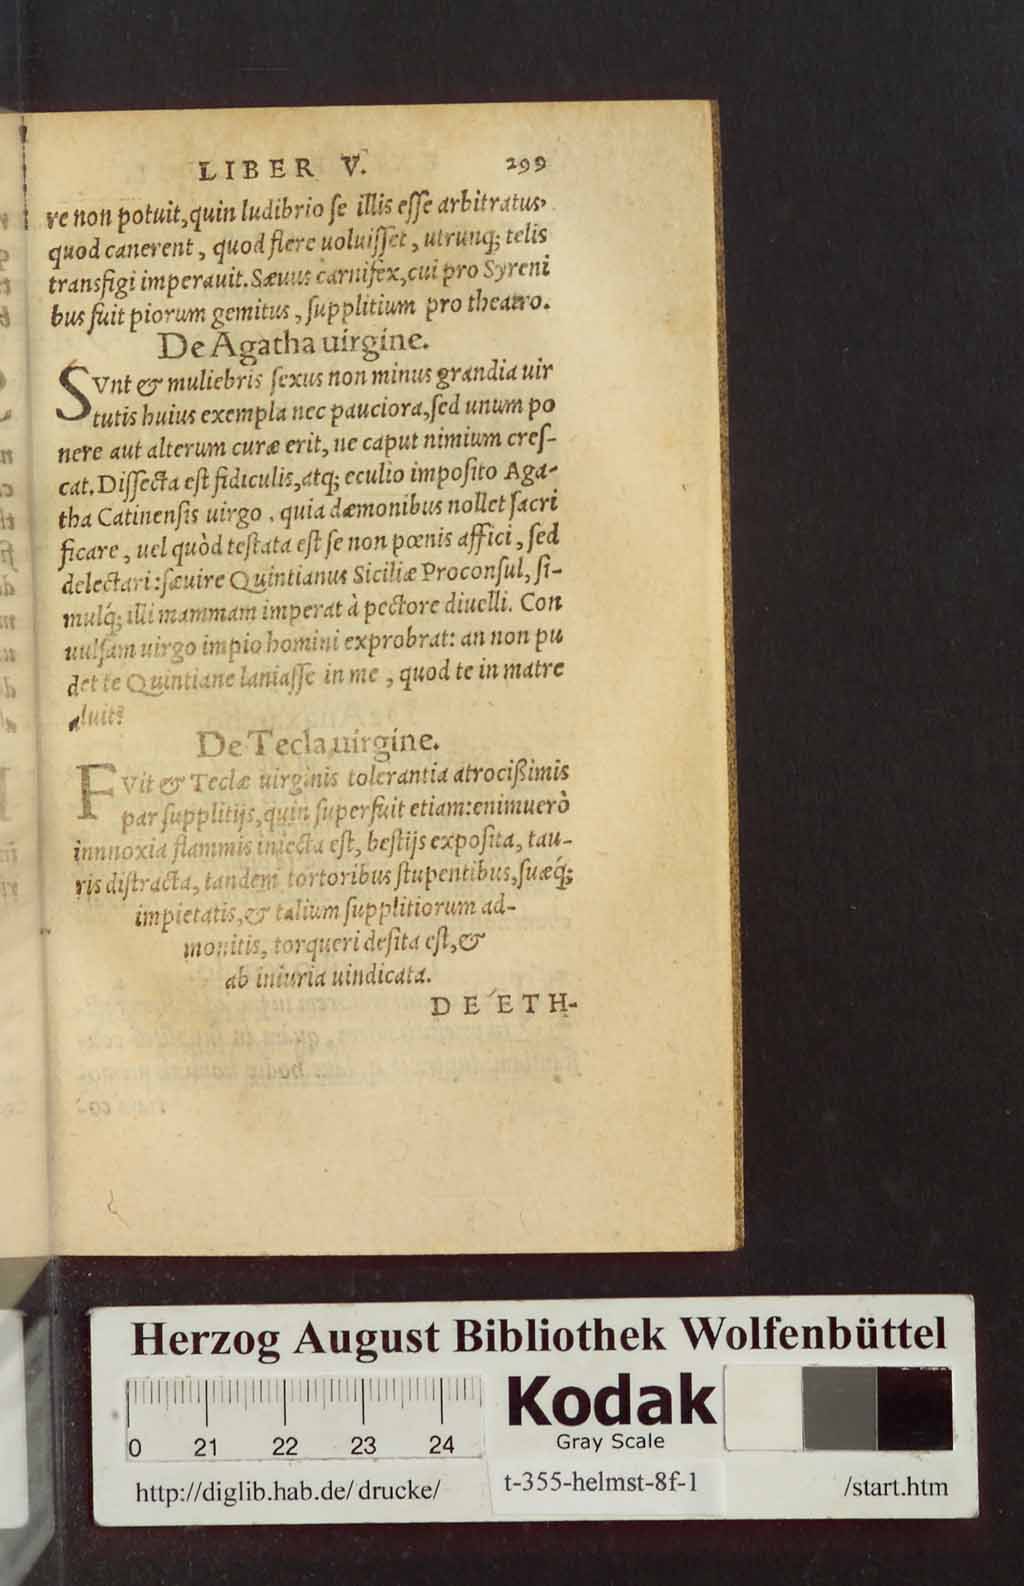 LIBER V. 299
re non potuit, quin ludibrio se illis esse arbitratus,
quod canerent, quod flere uoluisset, utrunq; telis
transfigi imperauit. Sæuus carnifex, cui pro Syreni
bus fuit piorum gemitus, supplitium pro theatro.
De Agatha uirgine.
SVnt & muliebris sexus non minus grandia uir
tutis huius exempla nec pauciora, sed unum po
nere aut alterum curæ erit, ne caput nimium cres-
cat. Dissecta est fidiculis, atq; eculio imposito Aga-
tha Catinensis uirgo, quia dæmonibus nollet sacri
ficare, uel quòd testata est se non pœnis affici, sed
delectari: sæuire Quintianus Siciliæ Proconsul, si-
mulq́; illi mammam imperat à pectore diuelli. Con
uulsam uirgo impio homini exprobrat: an non pu
det te Quintiane laniasse in me, quod te in matre
aluit?
De Tecla uirgine.
FVit & Teclæ uirginis tolerantia atrocißimis
par supplitijs, quin superfuit etiam: enimuerò
innnoxia flammis iniecta est, bestijs exposita, tau-
ris distracta, tandem tortoribus stupentibus, suæq́;
impietatis, & talium supplitiorum ad-
monitis, torqueri desita est, &
ab iniuria uindicata.
DE ETH-
Herzog August Bibliothek Wolfenbüttel
0 21 22 23 24
Kodak
Gray Scale
http://diglib.hab.de/drucke/ t-355-helmst-8f-1 /start.htm